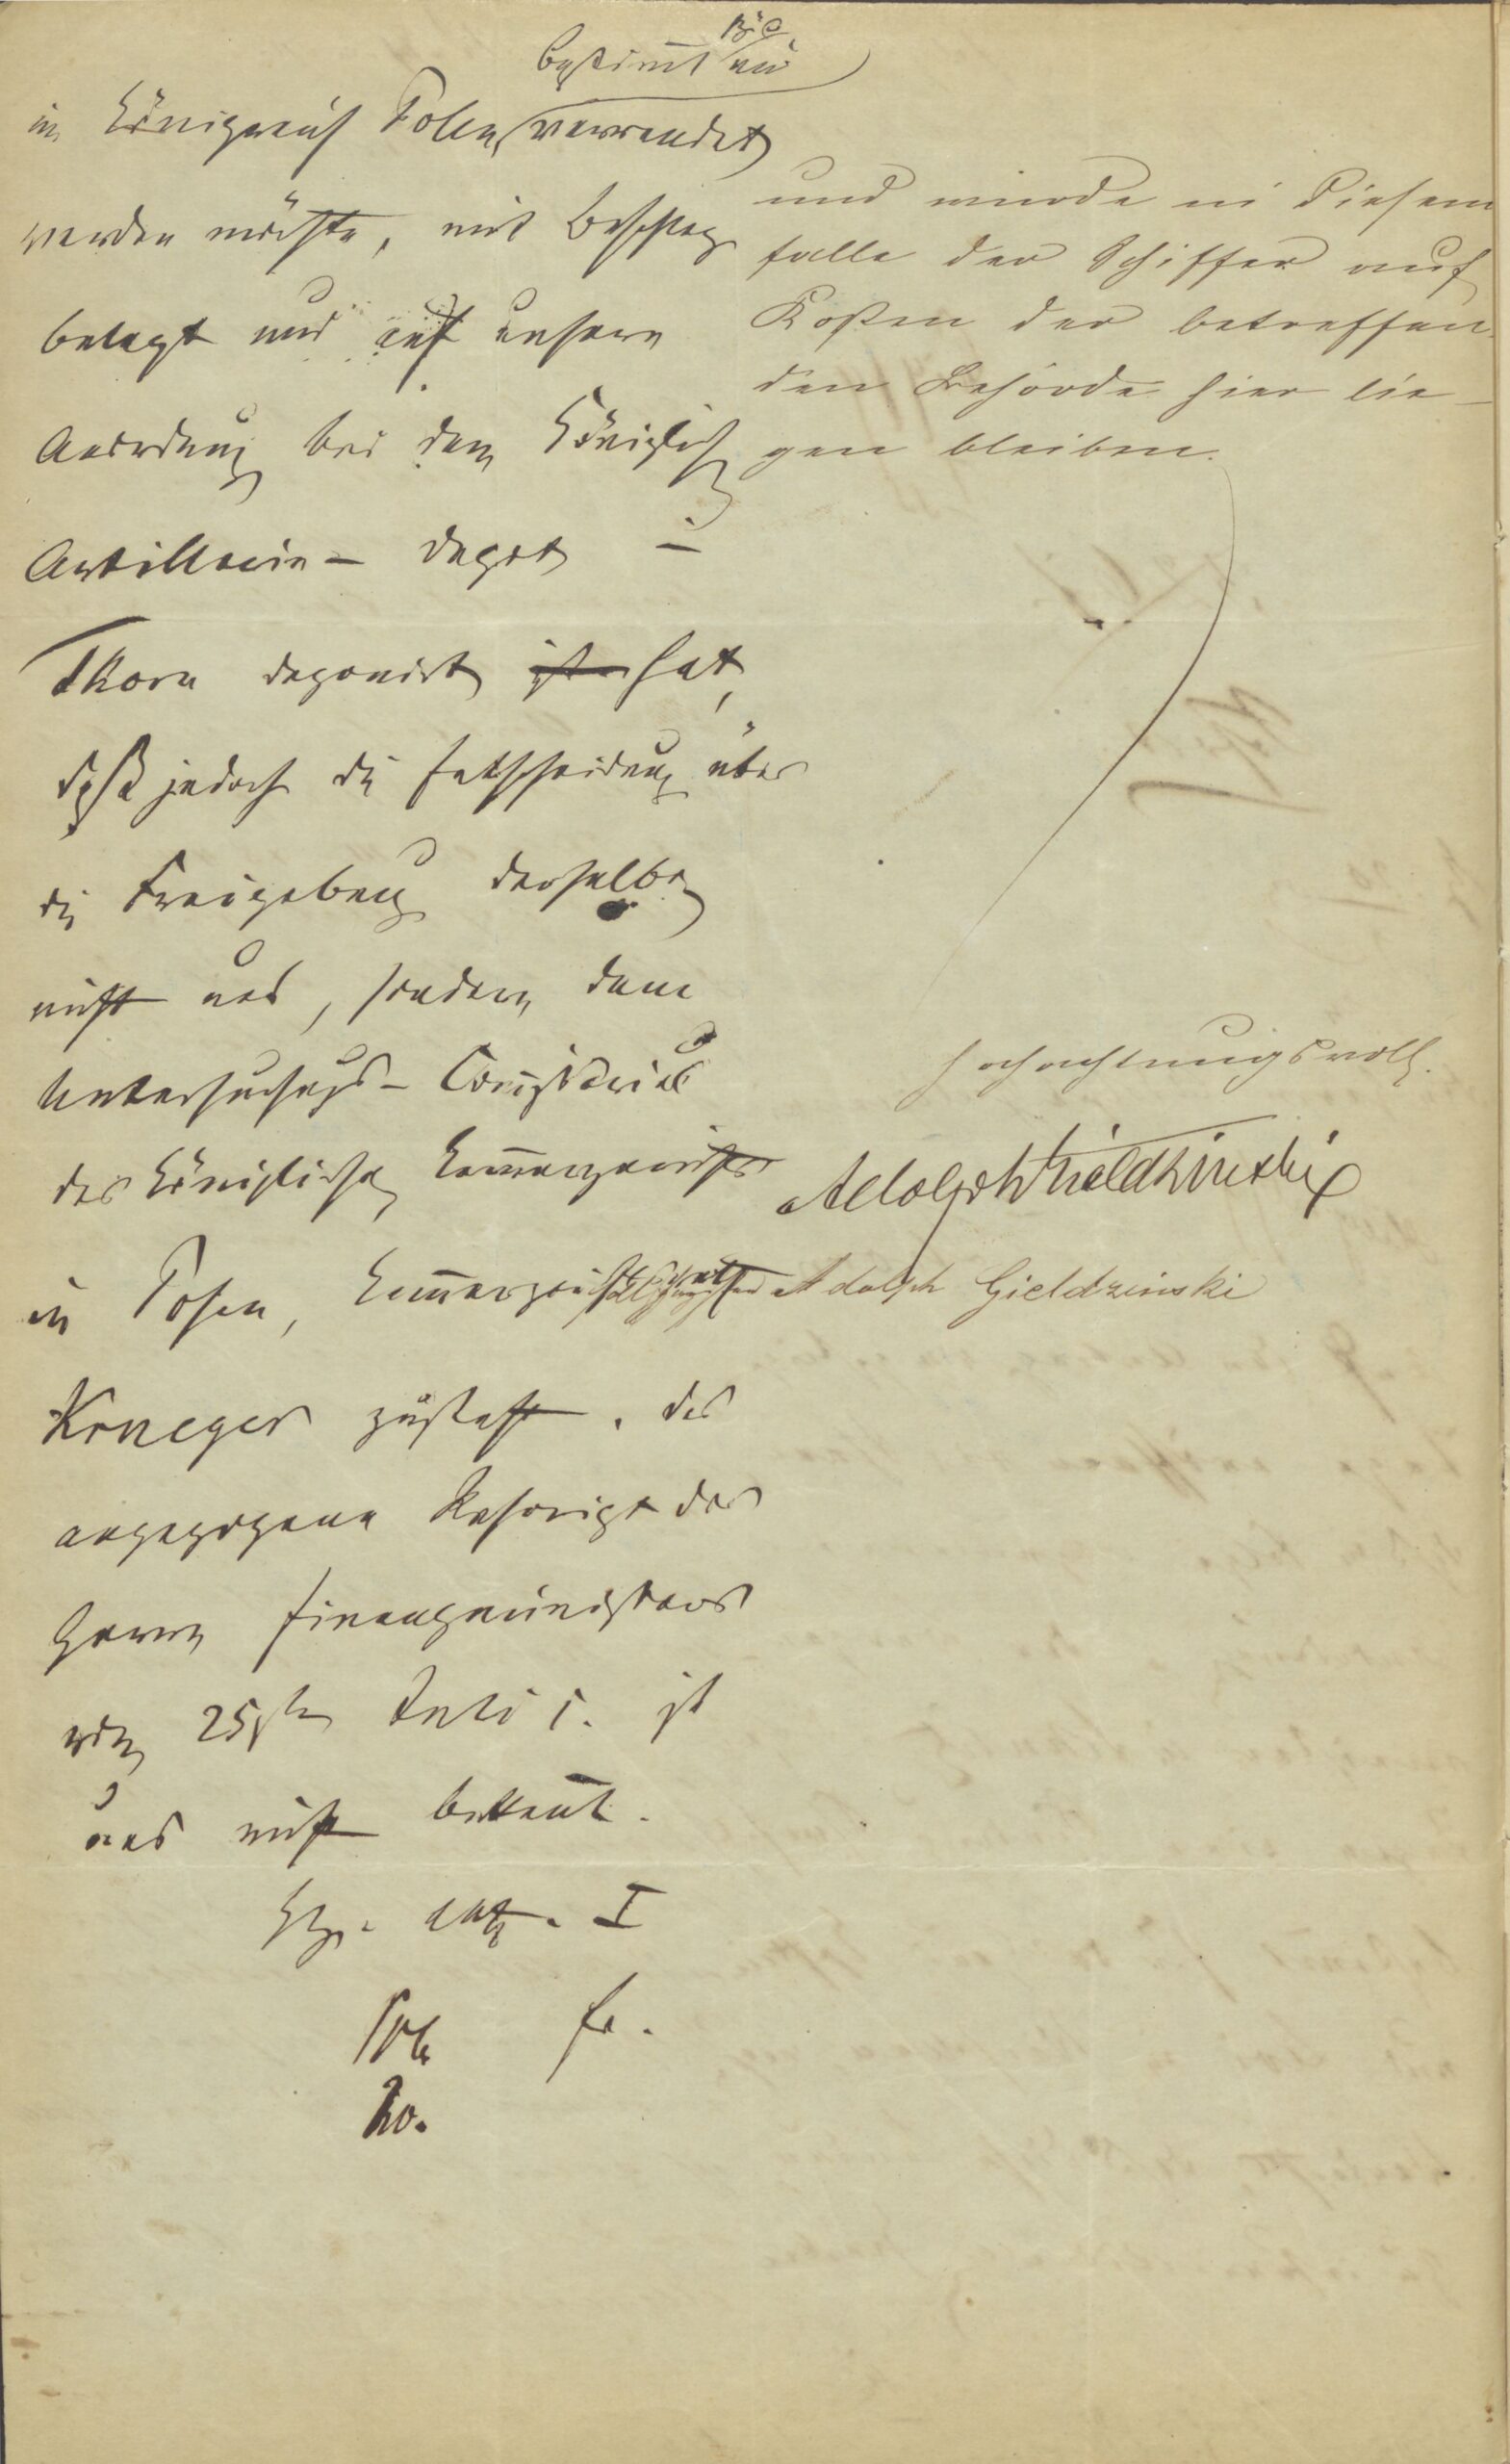 bestimt
im Königreich Polen verwendet
werden möchte, mit Beschlag
belegt und auf unsere
Anordnung bei dem Königlich
Artillerie- Depot
Thorn deponirt ist hat,
daß jedoch die Entscheidung über
die Freigebung derselben
nicht uns, sondern dem
Untersuchungs- Comissarius
des Königlichen Kammergerichts
in Posen, Kammergerichts
Krueger zusteht. Das
angezogene Rescript des
Herrn Finanzministers
vom 25sten Juli ist
uns nicht bekant.
und würde in diesem
falle der Schiffer auf
Kosten der betreffen
den Behörde hier lie-
gen bleiben.
Hochachtungsvoll.
Adolph Gieldzinski
Adolph Gieldzinski